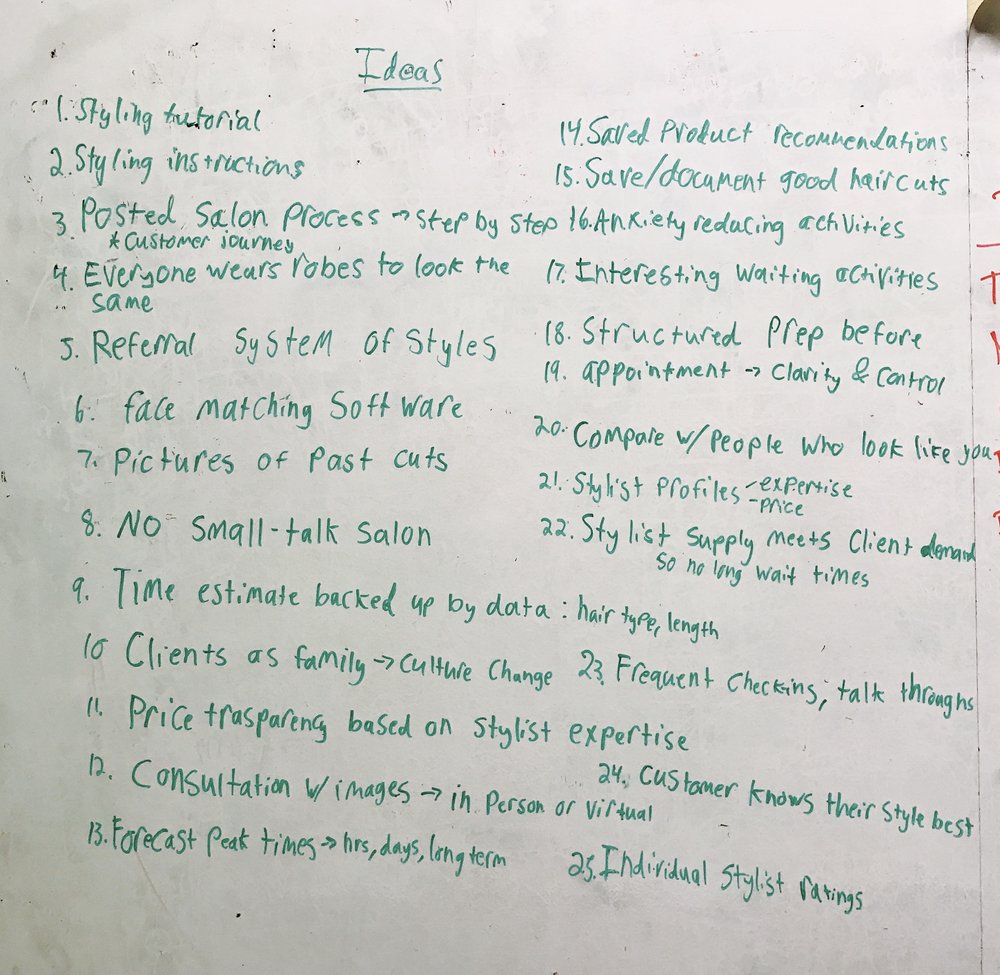 Ideas
1. Styling tutorial
2. Styling instructions
3. Posted Salon Process → step by step
* Customer journey
4. Everyone wears robes to look the
same
5. Referral System of Styles
6. face matching Software
7. Pictures of Past cuts
8. NO Small-talk Salon
9. Time estimate backed up by data : hair type, length
10 Clients as family → culture Change
11. Price trasparency based on stylist expertise
12. Consultation w/ images → in Person or Virtual
13. Forecast Peak times → hrs, days, long term
14. Saved Product recommendations
15. Save/document good haircuts
16. Anxiety reducing activities
17. Interesting waiting activities
18. Structured Prep before
19. appointment → Clarity & Control
20. Compare w/ People who look like you
21. Stylist Profiles - expertise
- price
22. Stylist supply meets Client demand
So no long wait times
23. Frequent Checkins, talk throughs
24. Customer knows their style best
25. Individual Stylist ratings